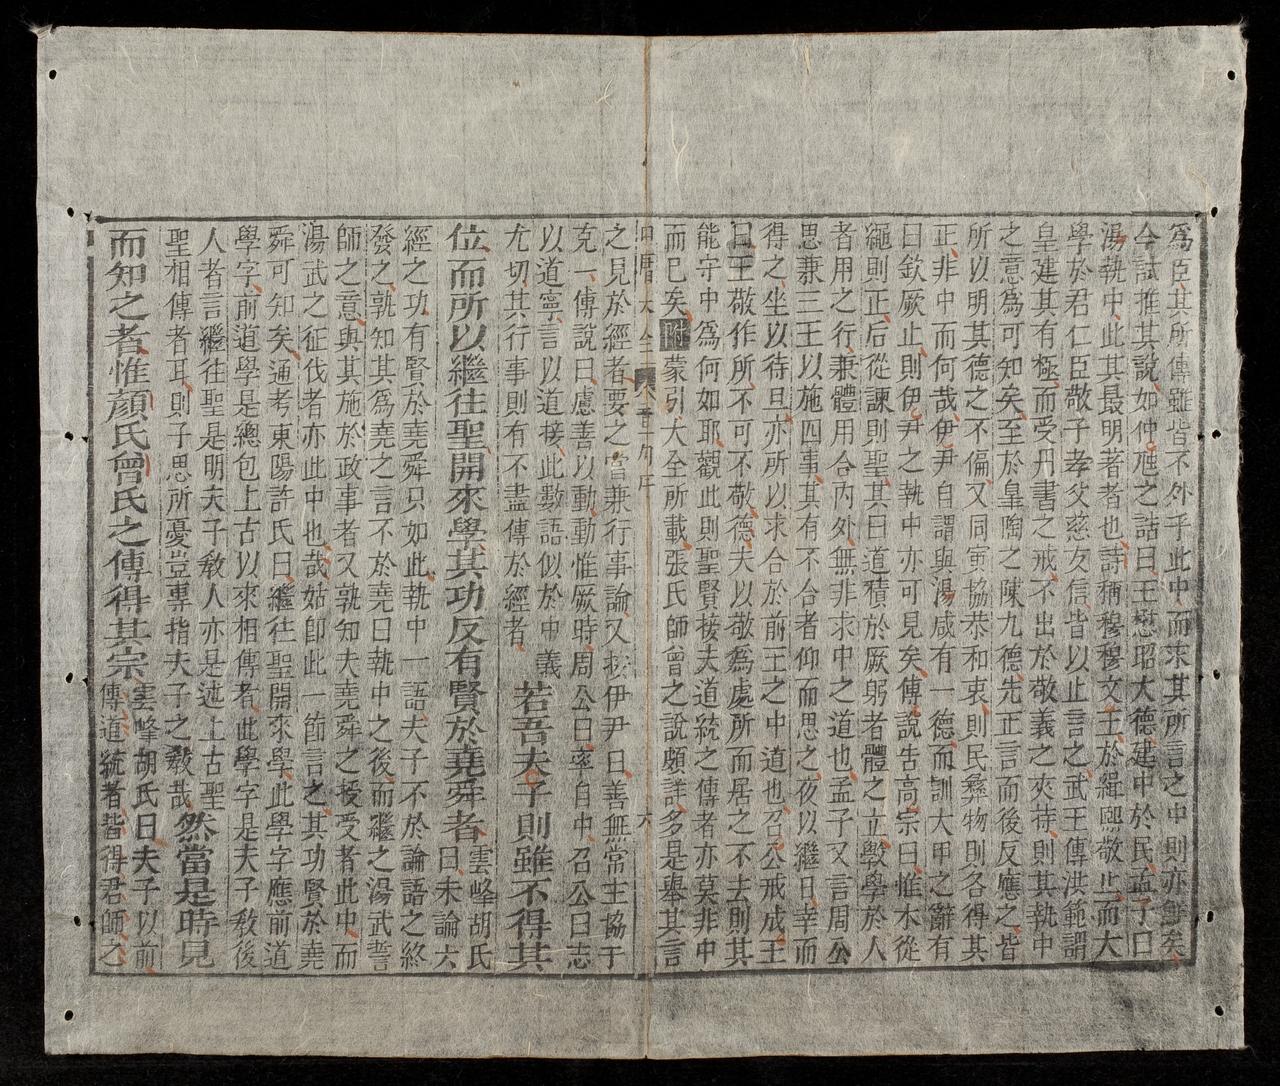 為臣其所傳雖皆不外乎此中而求其所言之中則亦鮮矣
今試推其說如仲虺之誥曰王懋昭大德建中於民孟子曰
湯執中此其最明著者也詩稱穆穆文王於緝熙敬止而大
學於君仁臣敬子孝父慈友信皆以止言之武王傳洪範謂
皇建其有極而受丹書之戒不出於敬義之夾持則其執中
之意為可知矣至於皐陶之陳九德先正言而後反應之皆
所以明其德之不偏又同寅協恭和衷則民彝物則各得其
正非中而何哉伊尹自謂與湯咸有一德而訓大甲之辭有
曰欽厥止則伊尹之執中亦可見矣傳說告高宗曰惟木從
繩則正后從諫則聖其曰道積於厥躬者體之立斆學於人
者用之行兼體用合內外無非求中之道也孟子又言周公
思兼三王以施四事其有不合者仰而思之夜以繼日幸而
得之坐以待旦亦所以求合於前王之中道也召公戒成王
曰王敬作所不可不敬德夫以敬為處所而居之不去則其
能守中為何如耶觀此則聖賢接夫道統之傳者亦莫非中
而已矣附蒙引大全所載張氏師曾之說頗詳多是舉其言
大全 六
之見於經者要之當兼行事論又按伊尹曰善無常主協于
克一傳說曰慮善以動動惟厥時周公曰率自中召公曰志
以道寧言以道接此數語似於中義
尤切其行事則有不盡傳於經者
若吾夫子則雖不得其
位而所以繼往聖開來學其功反有賢於堯舜者
雲峰胡氏
曰未論六
經之功有賢於堯舜只如此執中一語夫子不於論語之終
發之孰知其為堯之言不於堯曰執中之後而繼之湯武誓
師之意與其施於政事者又孰知夫堯舜之授受者此中而
湯武之征伐者亦此中也哉姑卽此一節言之其功賢於堯
舜可知矣通考東陽許氏曰繼往聖開來學此學字應前道
學字前道學是總包上古以來相傳者此學字是夫子教後
人者言繼往聖是明夫子教人亦是述上古聖
聖相傳者耳則子思所憂豈專指夫子之教哉
然當是時見
而知之者惟顏氏曾氏之傳得其宗
雲峰胡氏曰夫子以前
傳道統者皆得君師之